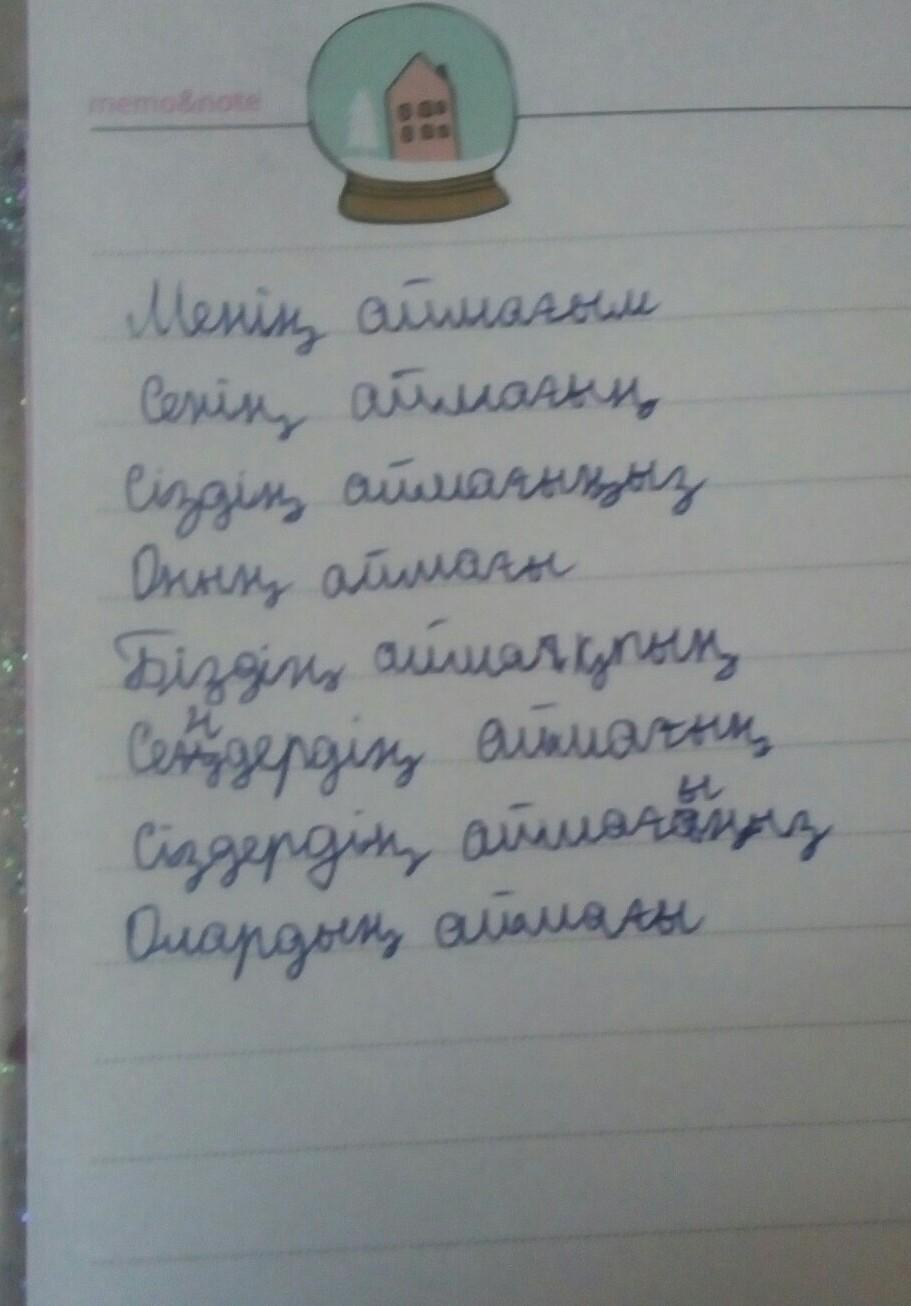 memo&note
Менің аймағым
Сенің аймағың
Сіздің аймағыңыз
Оның аймағы
Біздің
Сендердің аймағың
Сіздердің аймағыңыз
Олардың аймағы